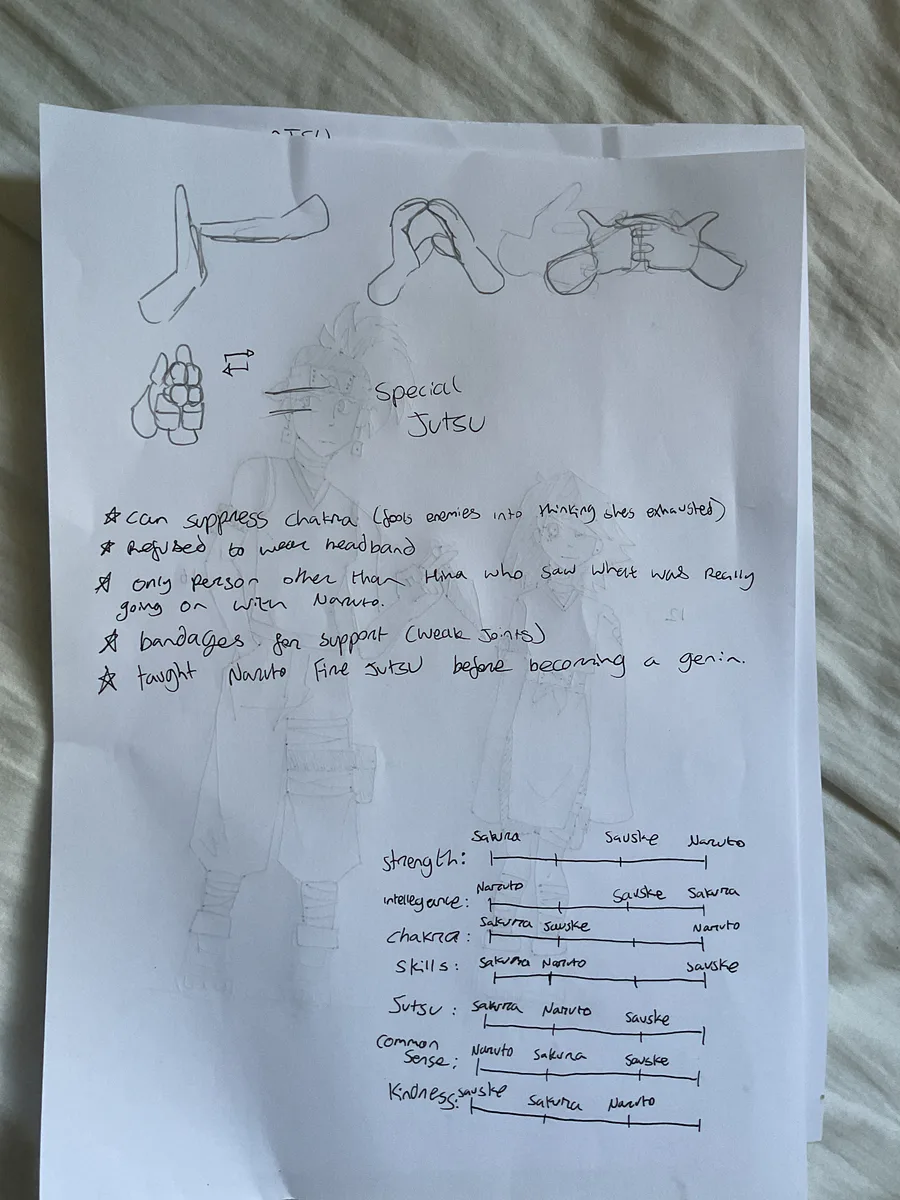 Special
Jutsu
☆ can suppress chakra (fools enemies into thinking shes exhausted)
☆ Refused to wear headband
☆ only person other than Hina who saw what was really
going on with Naruto.
☆ bandages for support (weak joints)
☆ taught Naruto Fire Jutsu before becoming a genin.
Sakura Sauske Naruto
strength:
Naruto Sauske Sakura
intellegance:
Sakurra Sauske Naruto
chakra:
skills: Sakura Naruto Sauske
Jutsu: Sakura Naruto Sauske
Common
Sense: Naruto Sakura Sauske
Kindness: Sauske Sakura Naruto